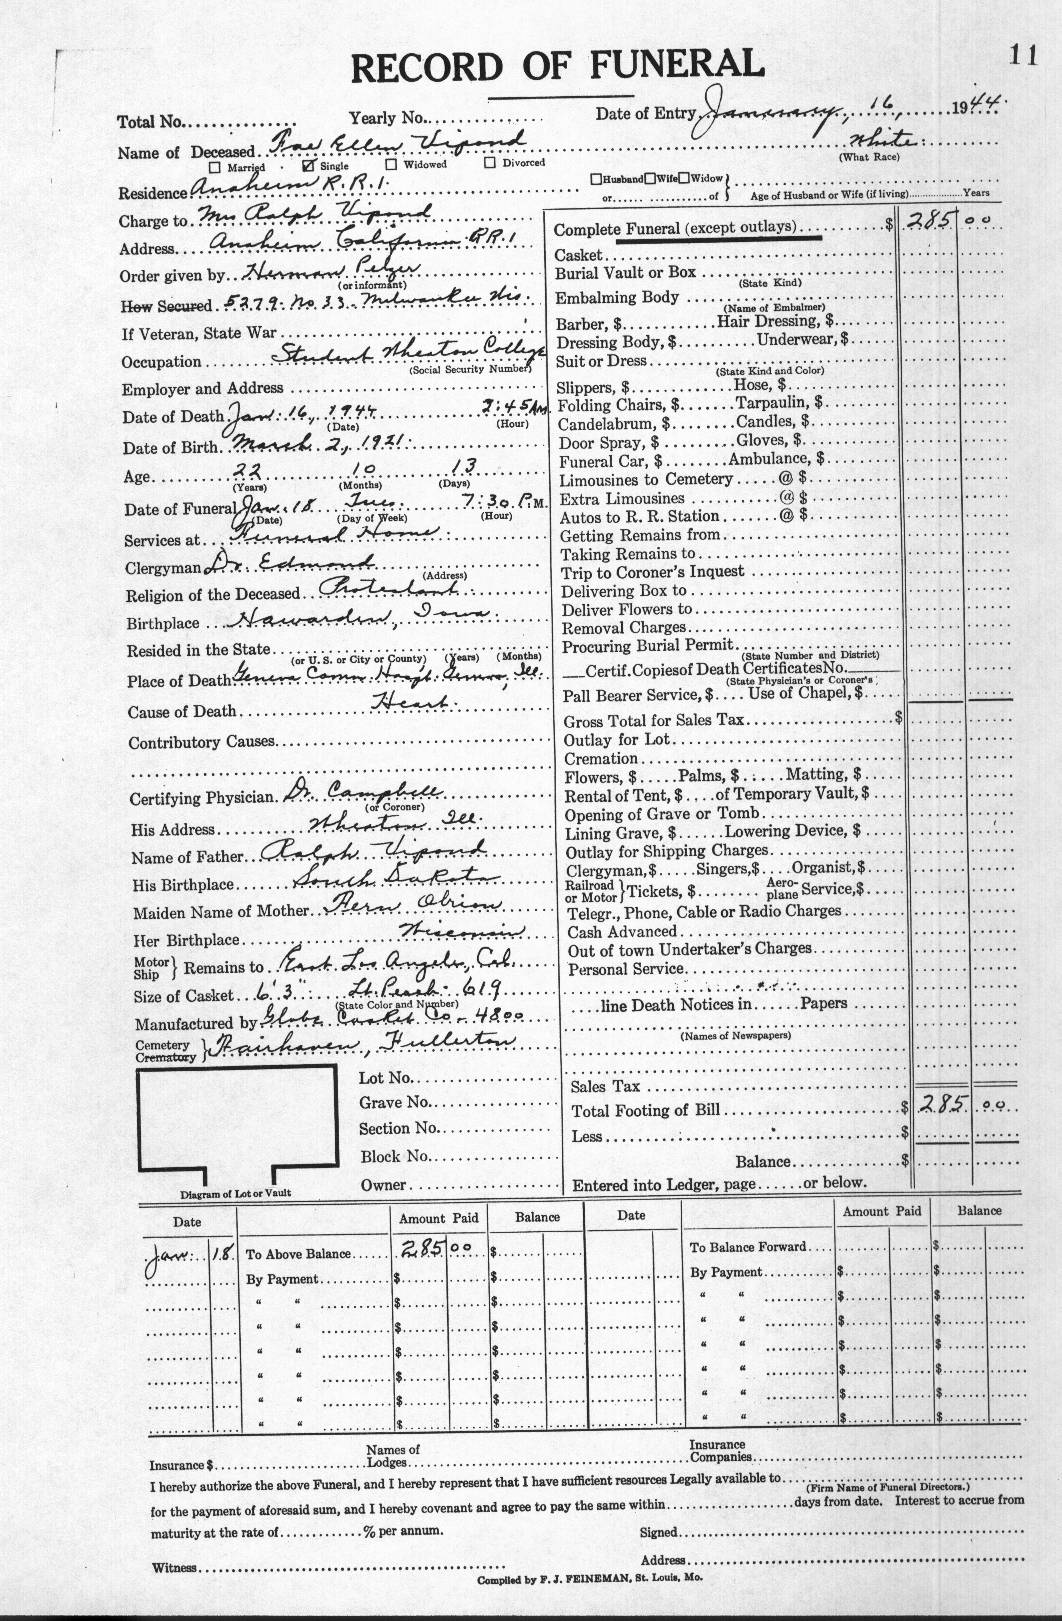 11
RECORD OF FUNERAL
Total No. Yearly No. Date of Entry January, 16, 1944.
Name of Deceased Fae Ellen Vipond White
(What Race)
☐ Married ☑ Single ☐ Widowed ☐ Divorced
Residence Anaheim R.R.1. ☐Husband☐Wife☐Widow
or of Age of Husband or Wife (if living) Years
Charge to Mrs Ralph Vipond
Address Anaheim California RR.1
Order given by Herman Pelzer
(or informant)
How Secured 5279. No. 33. Milwaukee Wis.
If Veteran, State War
Occupation Student Wheaton College
(Social Security Number)
Employer and Address
Date of Death Jan. 16, 1944 2:45 AM
(Date) (Hour)
Date of Birth March 2, 1921.
Age 22 10 13
(Years) (Months) (Days)
Date of Funeral Jan. 18 Tues. 7:30 P.M.
(Date) (Day of Week) (Hour)
Services at Funeral Home
Clergyman Dr. Edmond
(Address)
Religion of the Deceased Protestant
Birthplace Hawarden, Iowa.
Resided in the State
(or U. S. or City or County) (Years) (Months)
Place of Death Geneva Comm. Hospt. Geneva, Ill.
Cause of Death Heart.
Contributory Causes
Certifying Physician Dr. Campbell
(or Coroner)
His Address Wheaton Ill.
Name of Father Ralph Vipond
His Birthplace South Dakota
Maiden Name of Mother Fern Obrion
Her Birthplace Wisconsin
Motor
Ship } Remains to East Los Angeles, Cal.
Size of Casket 6' 3" Lt. Peach 619
(State Color and Number)
Manufactured by Globe Casket Co - 4800
Cemetery
Crematory } Fairhaven, Fullerton
Lot No.
Grave No.
Section No.
Block No.
Owner
Diagram of Lot or Vault
Complete Funeral (except outlays) $ 285 00
Casket
Burial Vault or Box
(State Kind)
Embalming Body
(Name of Embalmer)
Barber, $ Hair Dressing, $
Dressing Body, $ Underwear, $
Suit or Dress
(State Kind and Color)
Slippers, $ Hose, $
Folding Chairs, $ Tarpaulin, $
Candelabrum, $ Candles, $
Door Spray, $ Gloves, $
Funeral Car, $ Ambulance, $
Limousines to Cemetery @ $
Extra Limousines @ $
Autos to R. R. Station @ $
Getting Remains from
Taking Remains to
Trip to Coroner's Inquest
Delivering Box to
Deliver Flowers to
Removal Charges
Procuring Burial Permit
(State Number and District)
Certif.Copies of Death Certificates No.
(State Physician's or Coroner's)
Pall Bearer Service, $ Use of Chapel, $
Gross Total for Sales Tax $
Outlay for Lot
Cremation
Flowers, $ Palms, $ Matting, $
Rental of Tent, $ of Temporary Vault, $
Opening of Grave or Tomb
Lining Grave, $ Lowering Device, $
Outlay for Shipping Charges
Clergyman,$ Singers,$ Organist,$
Railroad
or Motor } Tickets, $ Aero-
plane Service,$
Telegr., Phone, Cable or Radio Charges
Cash Advanced
Out of town Undertaker's Charges
Personal Service
line Death Notices in Papers
(Names of Newspapers)
Sales Tax
Total Footing of Bill $ 285 00
Less $
Balance $
Entered into Ledger, page or below.
Date Amount Paid Balance Date Amount Paid Balance
Jan. 18. To Above Balance 285 00 $ To Balance Forward $
By Payment $ $ By Payment $ $
“ “ $ $ “ “ $ $
“ “ $ $ “ “ $ $
“ “ $ $ “ “ $ $
“ “ $ $ “ “ $ $
“ “ $ $ “ “ $ $
“ “ $ $ “ “ $ $
Insurance $ Names of
Lodges Insurance
Companies
I hereby authorize the above Funeral, and I hereby represent that I have sufficient resources Legally available to
(Firm Name of Funeral Directors.)
for the payment of aforesaid sum, and I hereby covenant and agree to pay the same within days from date. Interest to accrue from
maturity at the rate of % per annum. Signed
Witness Address
Compiled by F. J. FEINEMAN, St. Louis, Mo.